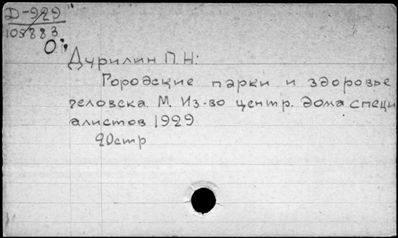 Д-929
105883
О:
Дурилин П.Н:
Городские парки и здоровье
человека. М. Из-во центр. дома специ
алистов 1929
20стр